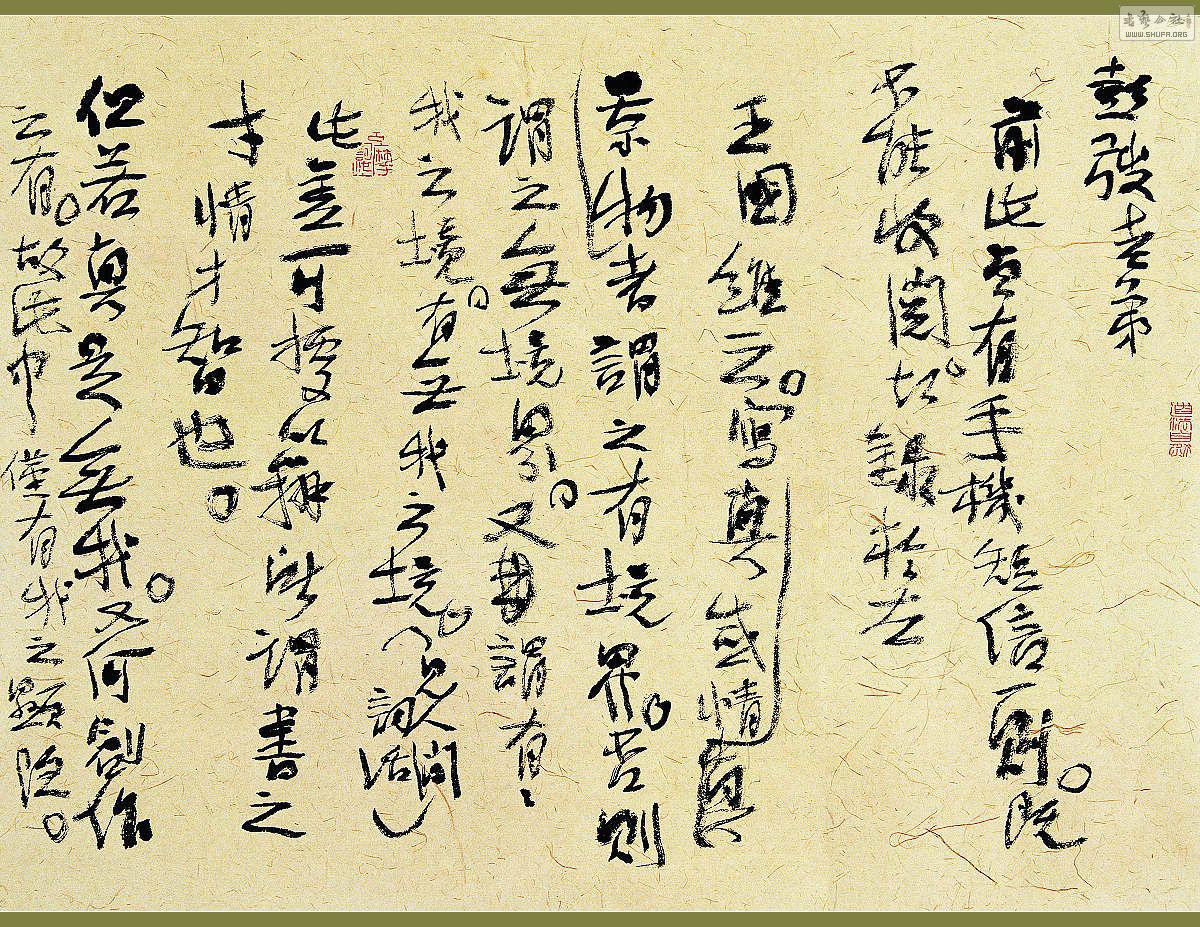 彭發老弟
前此曾有手機短信一則。既
不能收閱。故錄於左
王國維云。寫真感情真
景物者謂之有境界。否則
謂之無境界。又曰謂有有
我之境。有無我之境。(見人間
詞話)
此盖可授以稱所謂書之
才情才智也。
但若真是無我。又何創作
之有。故此中僅有我之顯隐。
WWW.SHUFA.ORG